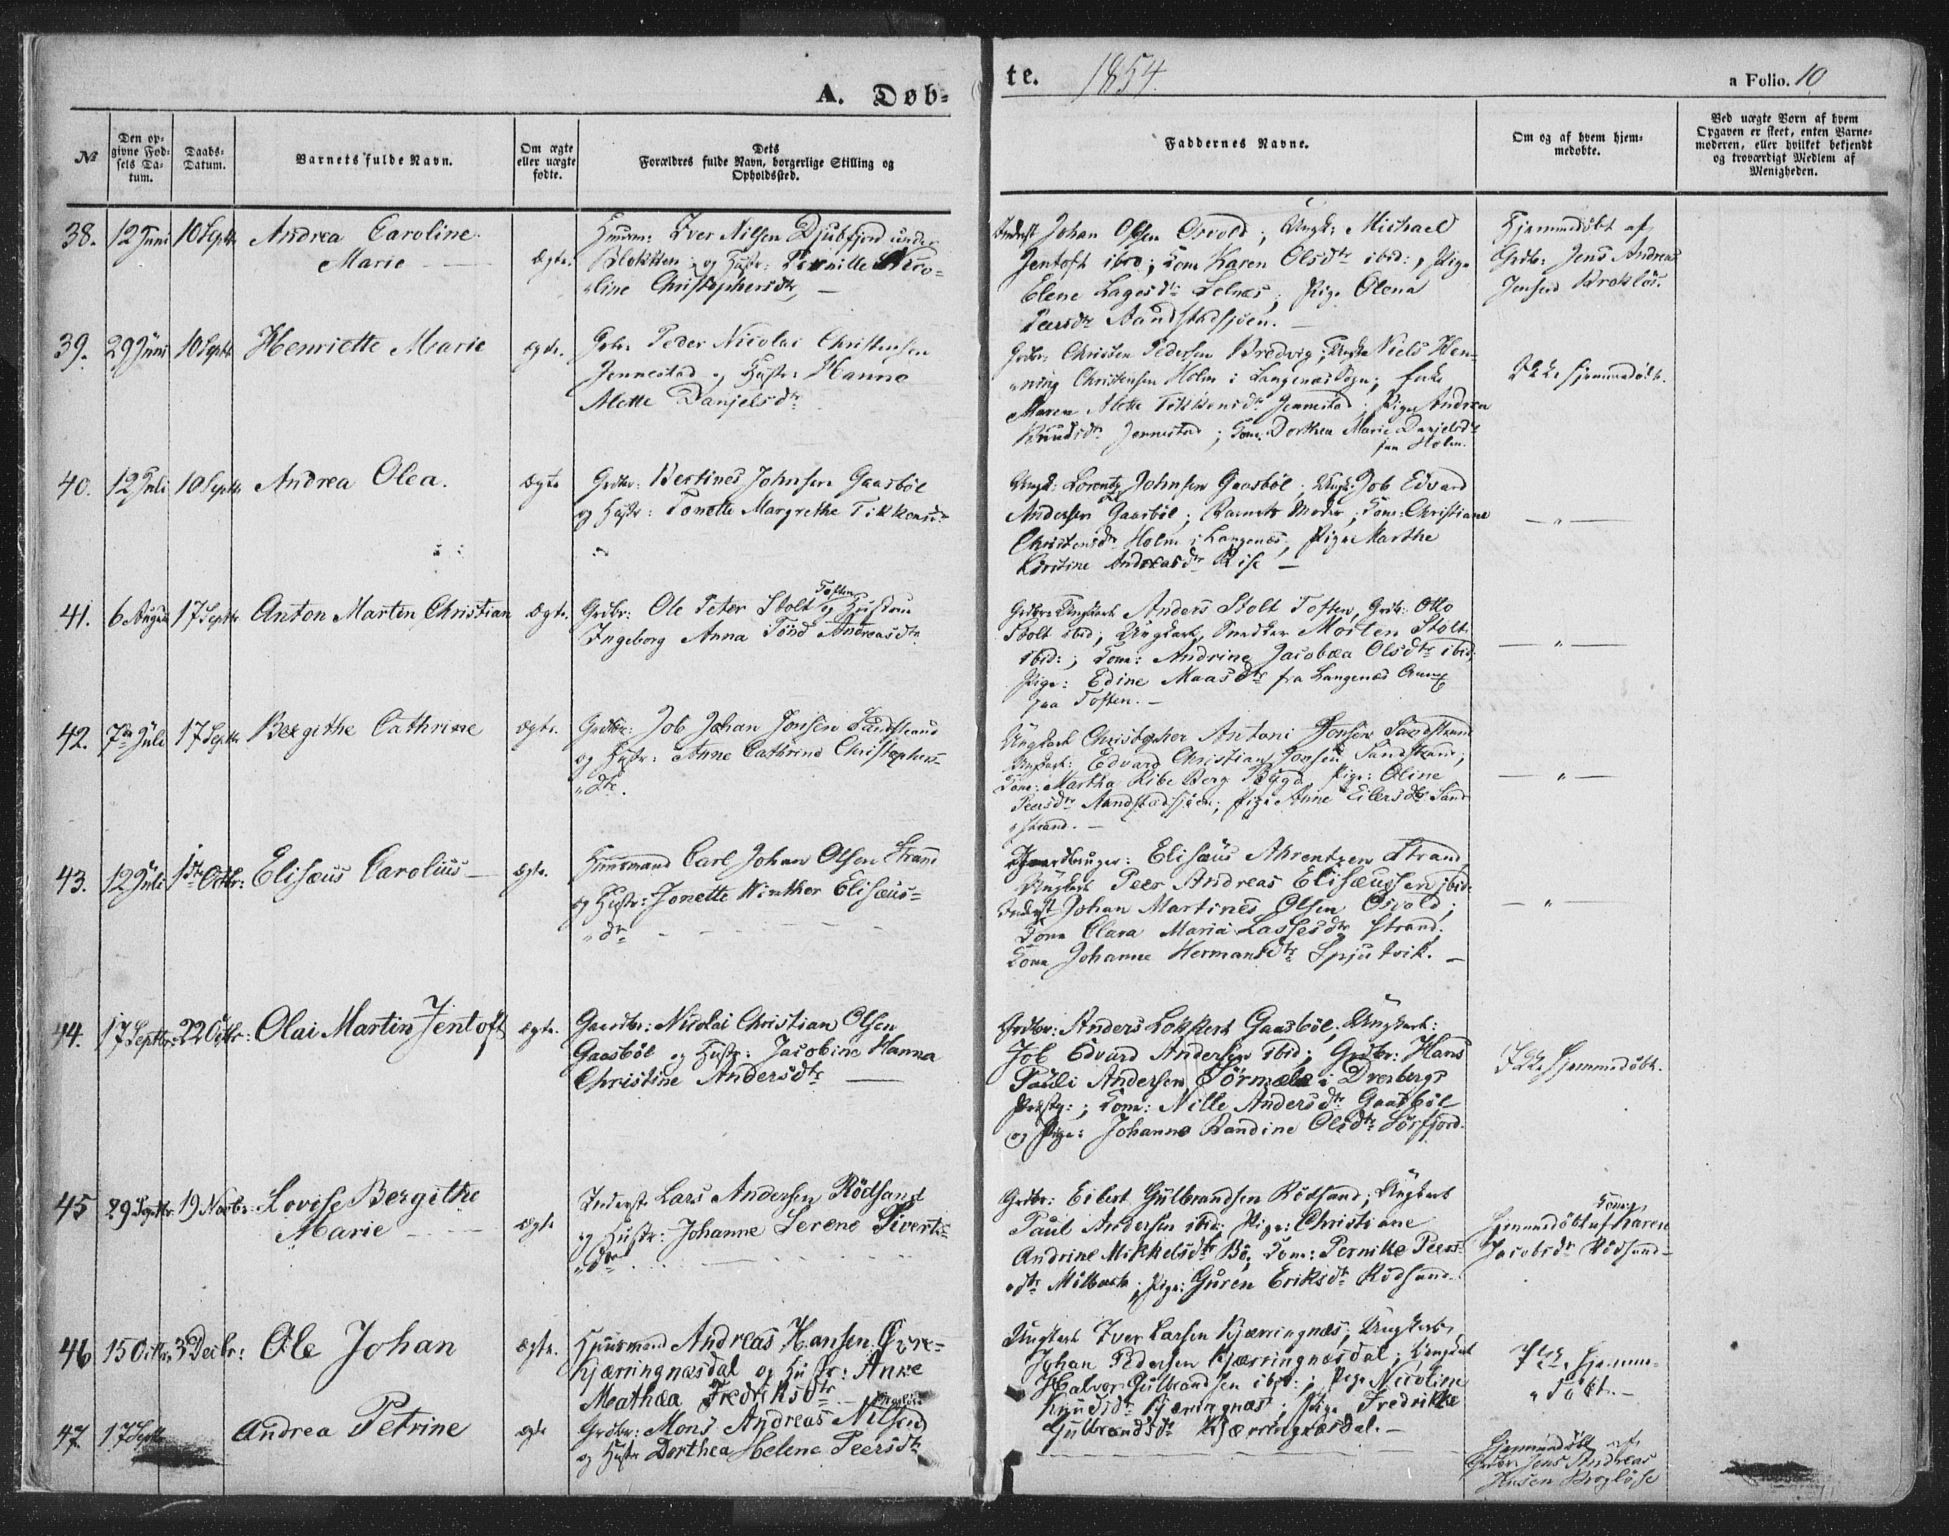 A. Døb-
te. 1854.
a Folio. 10
№
Den op-
givne Fød-
sels Da-
tum.
Daabs-
Datum.
Barnets fulde Navn.
Om ægte
eller uægte
fødte.
Dets
Forældres fulde Navn, borgerlige Stilling og
Opholdssted.
Faddernes Navne.
Om og af hvem hjem-
medøbte.
Ved uægte Børn af hvem
Opgaven er skeet, enten Barne-
moderen, eller hvilket bekjendt
og troværdigt Medlem af
Menigheden.
38. 12 Juni 10 Septr Andrea Caroline
Marie
ægte.
Huusm: Iver Nilsen Djubfjord under
Blokken og Hustr: Pernille Nico-
line Christophersdtr
Inderst Johan Olsen Osvold; Ungk: Michael
Jentoft ibid; Kone Karen Olsdtr ibid:, Pige
Elene Lagesdtr Selnæs; Pige Olena
Peersdtr Aandstadsjøen.
Hjemmedøbt af
Grdbr: Jens Andreas
Jensen Brokløs.
39. 29 Juni 10 Septr Henriette Marie ægte.
Grbr: Peder Nicolai Christensen
Jennestad og Hustr: Hanna
Alette Danjelsdtr
Grdbr: Christen Pedersen Bredvig; Ungk: Niels Hen-
ning Christensen Holm i Langenæs Sogn; Enke
Maren Alette Tikkensdtr Jennestad; Pige Andrea
Knudsdtr Jennestad; Kone Dorthea Marie Danjelsdtr
fra Holm.
Ikke hjemmedøbt.
40. 12 Juli 10 Septr Andrea Olea. ægte
Grdbr: Bertines Johnsen Gaasbøl
og Hustr: Tonette Margrethe Tikkensdtr
Ungk: Lorentz Johnsen Gaasbøl; Ungk: Job Edvard
Andersen Gaasbøl; Barnets Moder; Kone: Christiane
Christensdtr Holm i Langenæs; Pige Marthe
Kirstine Andreasdtr Rise —
— " —
41. 6 August 17 Septr Anton Marten Christian ægte.
Grdbr: Ole Peter Stolt Toften og Hustru
Ingeborg Anna Tønd Andreasdtr
Grdbr: Ungkarl Anders Stolt Toften, Grdbr: Otto
Stolt ibid; Ungkarl Snedker Morten Stolt
ibid:; Kone: Andrine Jacobæa Olsdtr ibid;
Pige: Edine Maasdtr fra Langenæs
paa Toften. —
— " —
42. 7de Juli 17 Septr Bergithe Cathrine ægte.
Grdbr: Job Johan Jonsen Sandstrand
og Hustr: Anne Cathrine Christophers-
"dtr.
Ungkarl Christopher Antoni Jonsen Sandstrand
Ungkarl: Edvard Christian Jonsen Sandstrand;
Kone: Martha Ribe Berg Bygd; Pige: Oline
Peersdtr Aandstadsjøen; Pige Anne Eilersdtr Sand-
"strand. —
— " —
43. 12 Juli 1ste Octbr: Elisæus Carolius — ægte.
Huusmand Carl Johan Olsen Strand
og Hustr: Jonette Winther Elisæus-
"dtr
Gaardbruger: Elisæus Ahrentzen Strand,
Ungkarl Peer Andreas Elisæussen ibid:
Inderst Johan Martines Olsen Osvold;
Kone Clara Maria Lassesdtr Strand;
Kone Johanne Hermansdtr Spjutvik. —
— " —
44. 17 Septbr: 22 Octbr: Olai Martin Jentoft ægte.
Gaardbr: Nicolai Christian Olsen
Gaasbøl og Hustr: Jacobine Hanna
Christine Andersdtr —
Grdbr: Anders Lokkert Gaasbøl; Ungkarl:
Job Edvard Andersen ibid; Grdbr: Hans
Pauli Andersen Sörmæle i Dverbergs
Præstg:; Kone: Nille Andersdtr Gaasbøl
og Pige: Johanna Randine Olsdtr Sörfjord.
Ikke hjemmedøbt.
45 29 Septbr 19 Novbr: Lovise Bergithe
Marie
ægte
Inderst Lars Andersen Rödsand
og Hustr: Johanne Serene Siverts-
"dtr
Grdbr: Eilert Gulbrandsen Rödsand; Ungkarl
Paul Andersen ibid; Pige: Christiane
Andrine Mikkelsdtr Bö; Kone: Pernike Peers-
"dtr ; Pige: Guren Eriksdtr Rödsand.
Hjemmedøbt af Kone Karen
Jacobsdtr Rödsand
46 15 Octbr. 3 Decbr: Ole Johan ægte.
Huusmand Andreas Hansen Øvre-
kjærringnæsdal og Hustr: Anne
Mathæa Fredriksdtr
Ungkarl Iver Larsen Kjærringnæs; Ungkarl
Johan Pedersen Kjærringnæsdal; Ungkarl
Halvor Gulbrandsen ibid:; Pige Nicoline
Knudsdtr Kjærringnæs; Pige Fredrikke
Gulbrandsdtr Kjærringnæsdal. —
Ikke hjemme-
"døbt. —
47. 17 Septbr Andrea Petrine ægte
Grdbr: Mons Andreas Nilsen
og Hustr Dorthea Helena Peersdtr
Hjemmedøbt af
Grdbr Jens Andreas
Jensen Brogløse